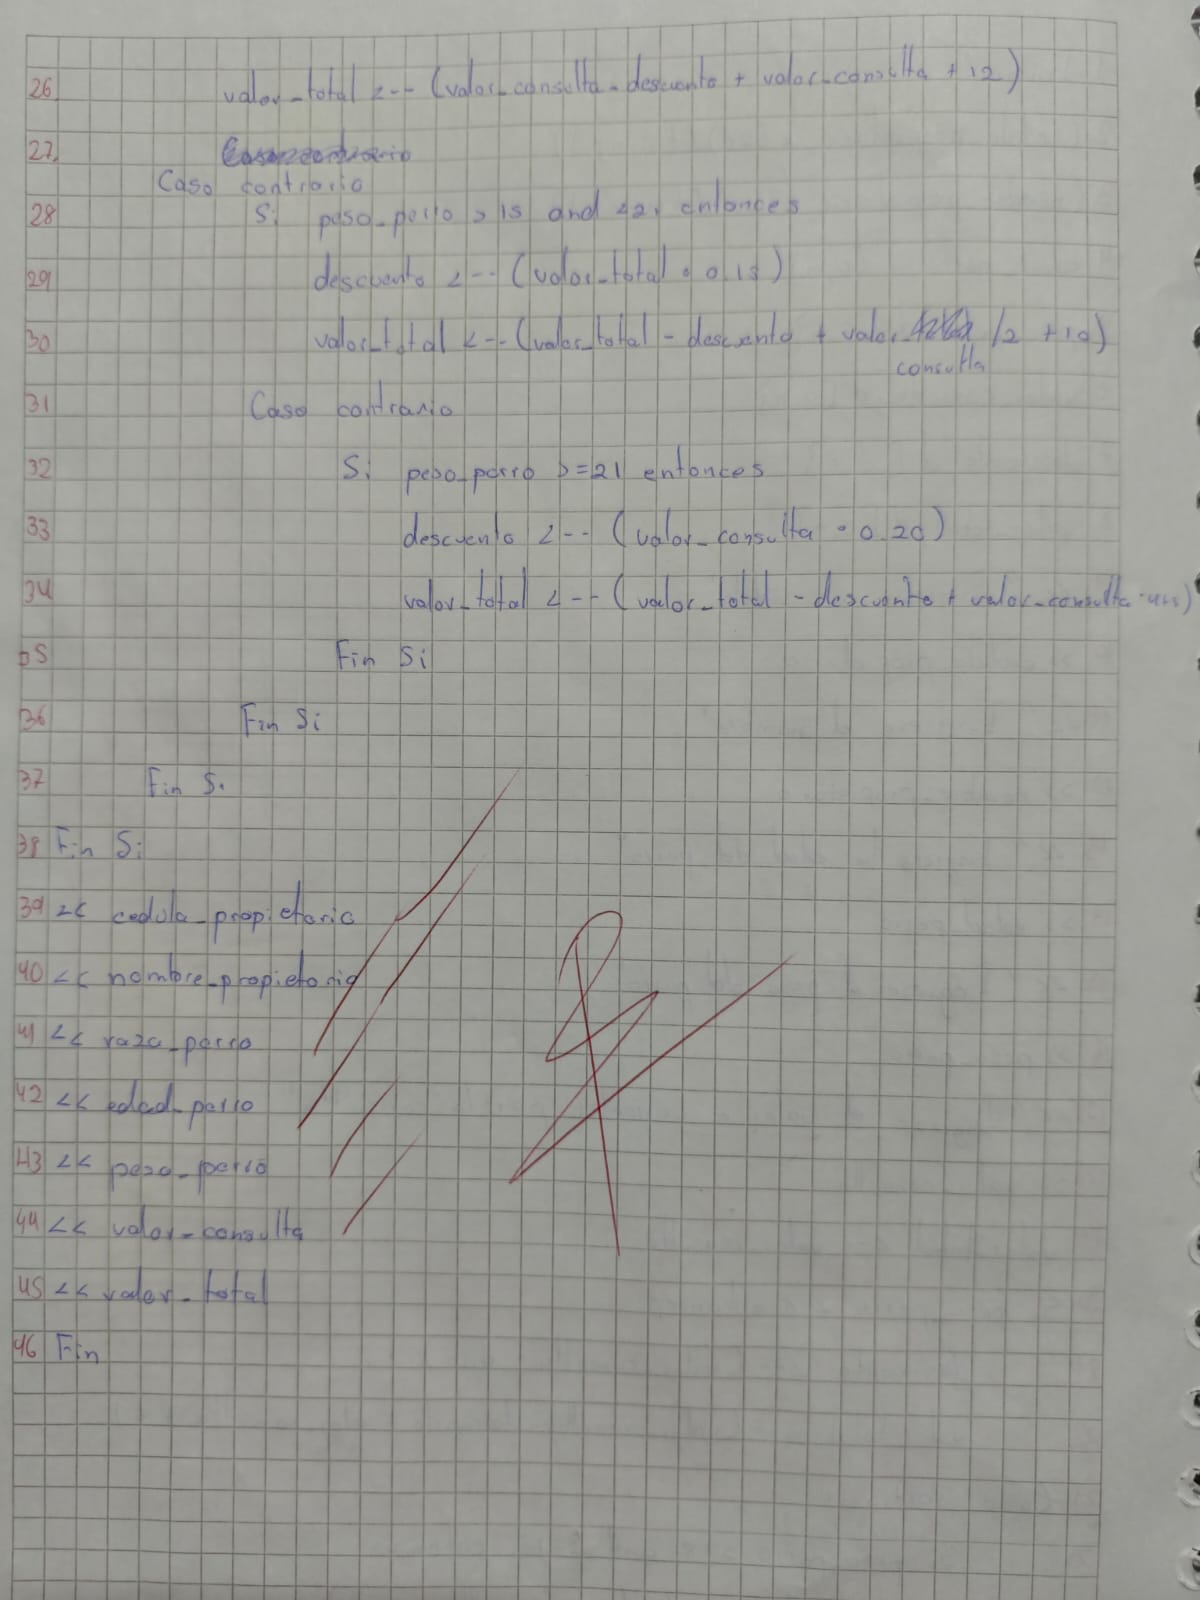 26 valor_total <-- (valor_consulta - descuento + valor_consulta + 12)
27
Caso contrario
28 Si peso_perro > 15 and <21 entonces
29 descuento <-- (valor_total * 0.15)
30 valor_total <-- (valor_total - descuento + valor /2 + 10)
consulta
31 Caso contrario
32 Si peso_perro >=21 entonces
33 descuento <-- (valor_consulta * 0.20)
34 valor_total <-- (valor_total - descuento + valor_consulta
35 Fin Si
36 Fin Si
37 Fin Si
38 Fin Si
39 << cedula_propietario
40 << nombre_propietario
41 << raza_perro
42 << edad_perro
43 << peso_perro
44 << valor_consulta
45 << valor_total
46 Fin